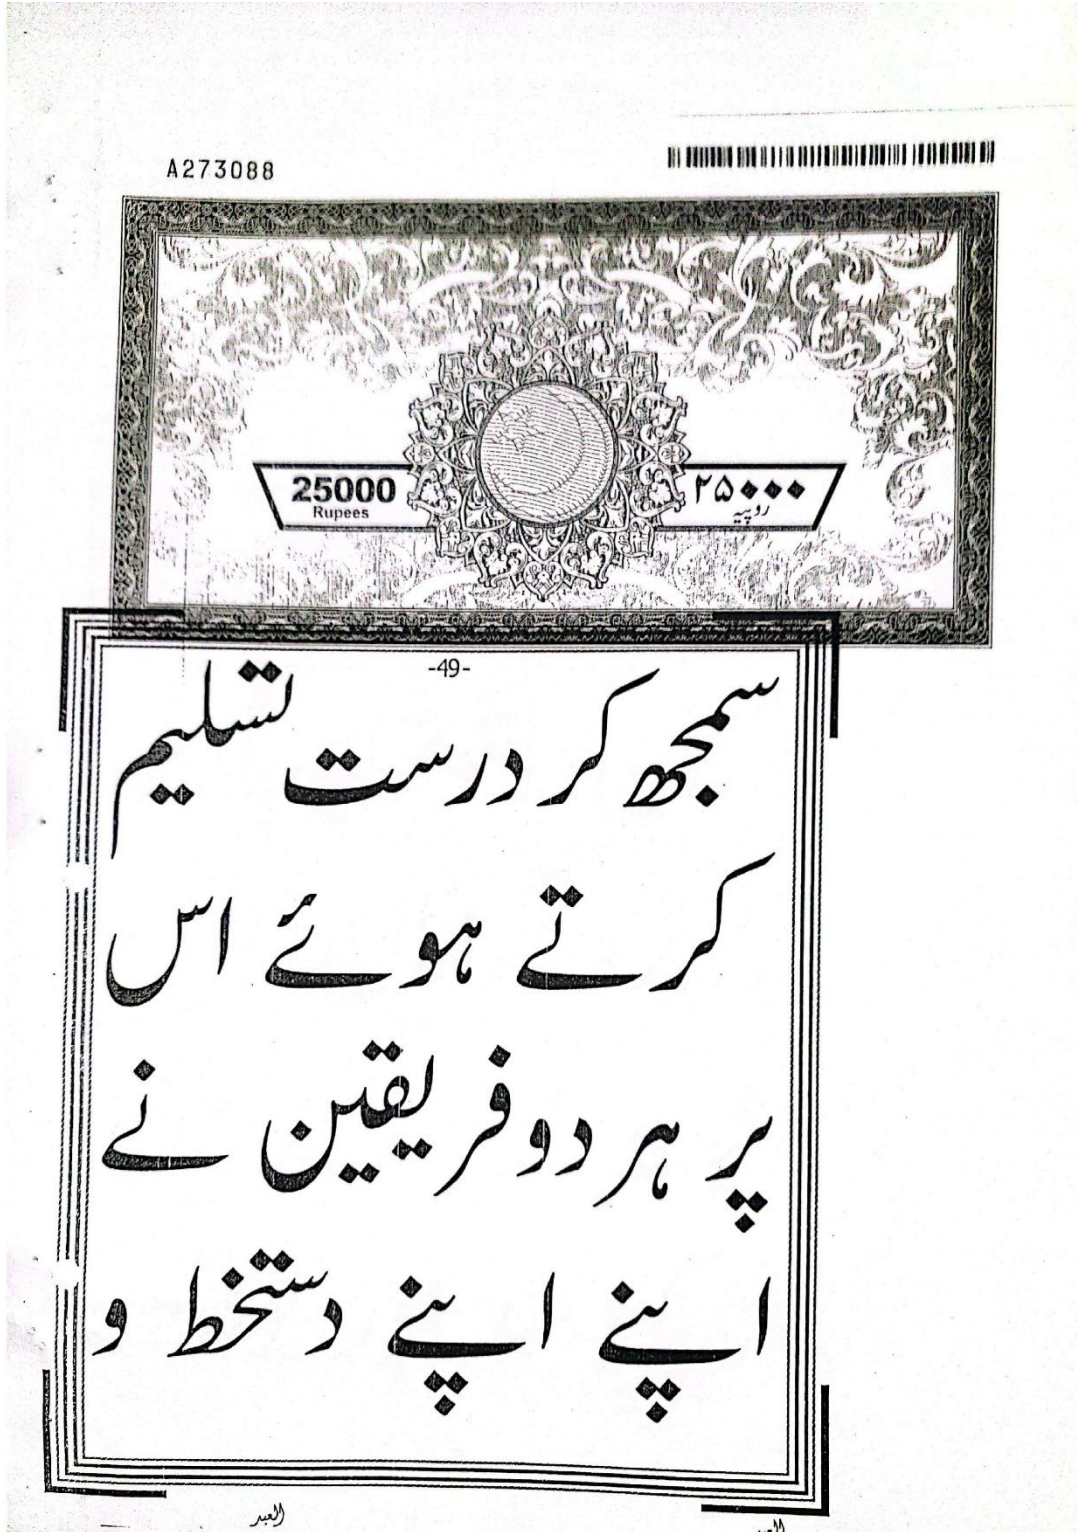 A273088
25000
Rupees
۲۵۰۰۰
روپیہ
-49-
سمجھ کر درست تسلیم
کرتے ہوئے اس
پر ہر دو فریقین نے
اپنے اپنے دستخط و
العبد
العبد